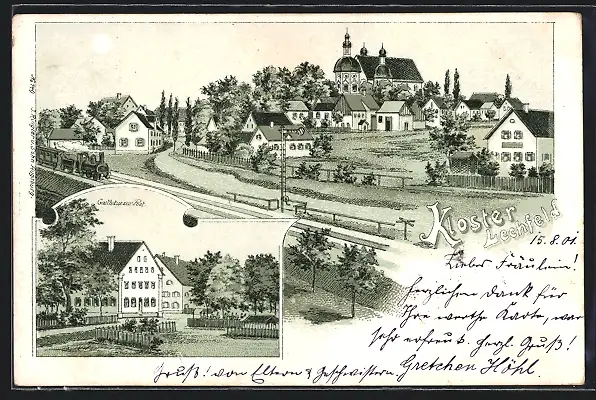 Gasthaus zur Post.
Kloster
Lechfeld
15.8.01.
Liebes Fräulein!
Herzlichen Dank für
Ihre werthe Karte, war
sehr erfreut. Herzl. Gruß!
Gretchen Höhl.
Gruß! von Eltern & Geschwistern.